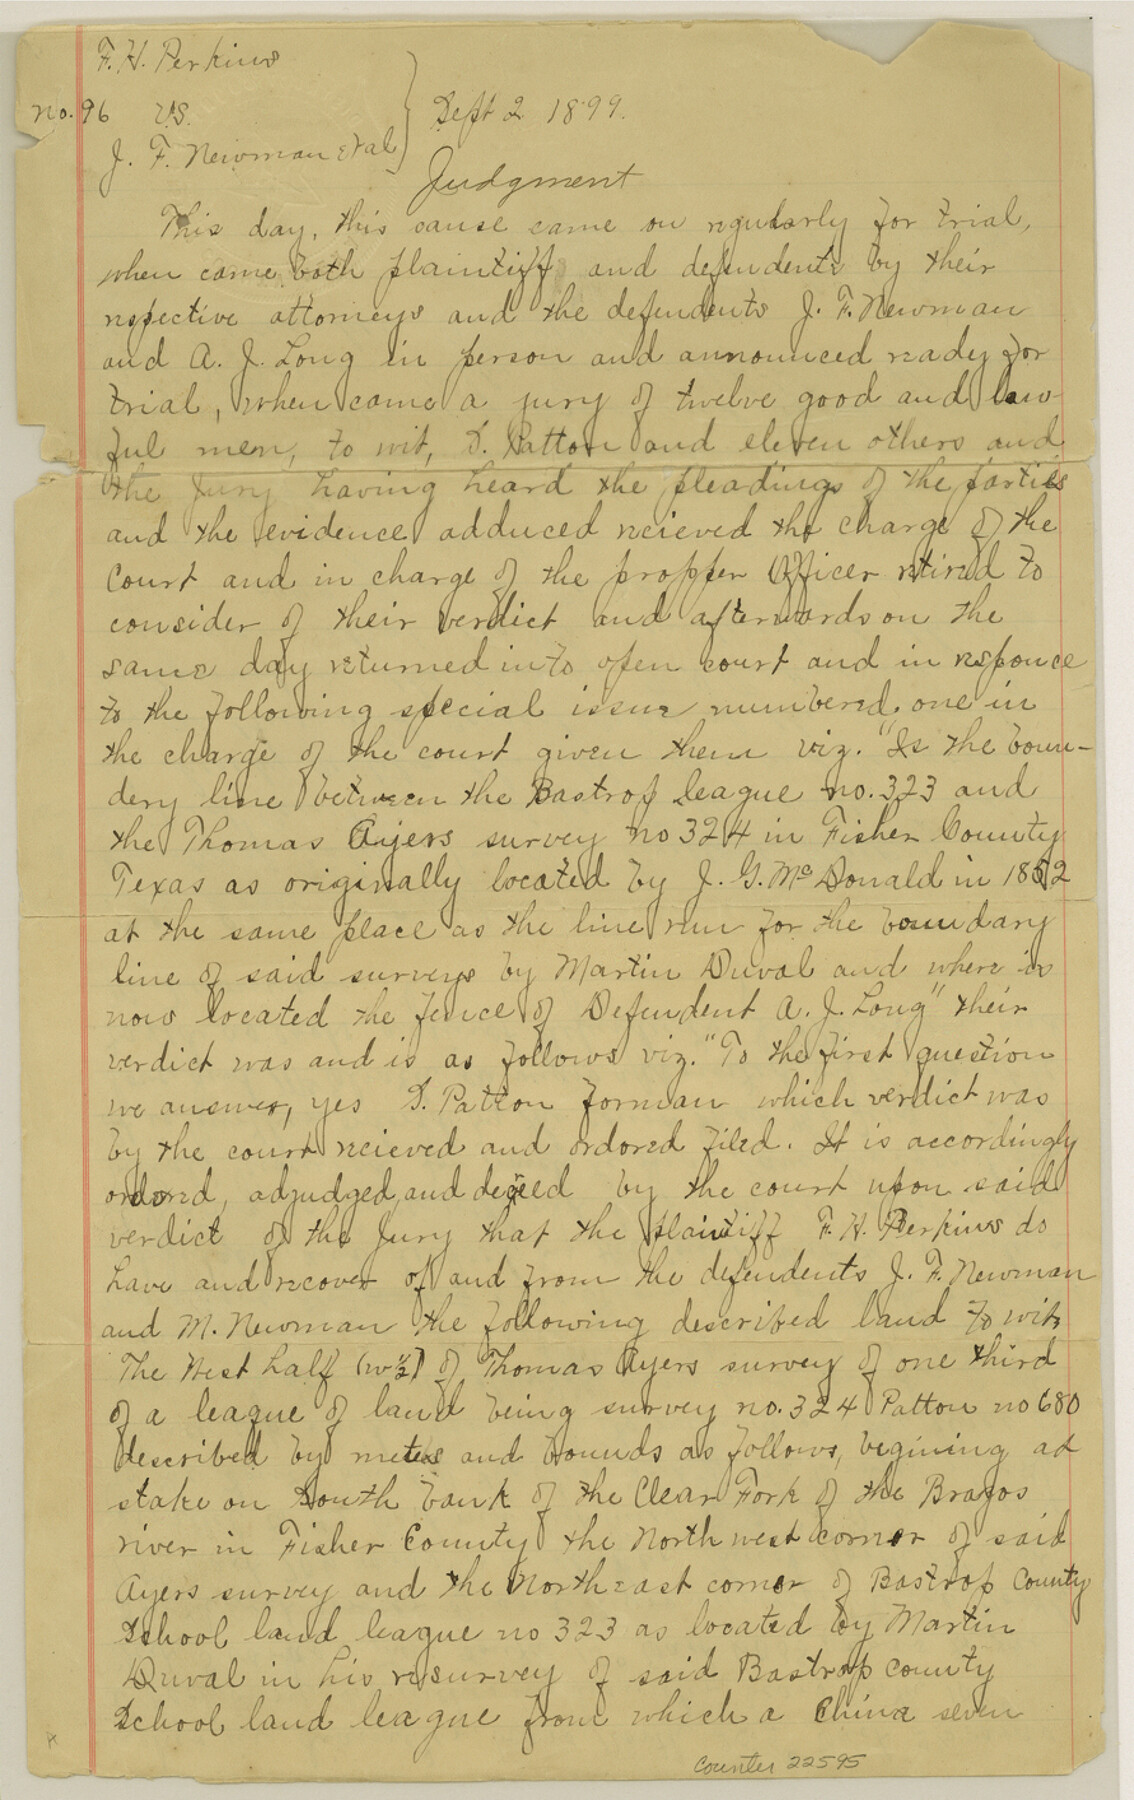 F. H. Perkins
No. 96 vs. Sept 2 1899.
J. F. Newman et al
Judgment
This day, this cause came on regularly for trial,
when came both plaintiff and defendents by their
respective attorneys and the defendents J. F. Newman
and A. J. Long in person and announced ready for
trial, when came a jury of twelve good and law-
ful men, to wit, D. Patton and eleven others and
the Jury having heard the pleadings of the parties
and the evidence adduced recieved the charge of the
Court and in charge of the propper Officer retired to
consider of their verdict and afterwards on the
same day returned into open court and in responce
to the following special issue numbered, one in
the charge of the court given them viz. "Is the boun-
dery line between the Bastrop league no. 323 and
the Thomas Ayers survey no 324 in Fisher County
Texas as originally located by J. G. McDonald in 1852
at the same place as the line run for the boundary
line of said surveys by Martin Duval and where is
now located the fence of Defendent A. J. Long" their
verdict was and is as follows viz. "To the first question
we answer, yes D. Patton forman which verdict was
by the court recieved and ordored filed. It is accordingly
ordored, adjudged, and deceed by the court upon said
verdict of the Jury that the plaintiff F. H. Perkins do
have and recover of and from the defendents J. F. Newman
and M. Newman the following described land to wit,
The West half (w ½) of Thomas Ayers survey of one third
of a league of land being survey no. 324 Patton no 680
described by metes and bounds as follows, begining at
stake on South bank of the Clear Fork of the Brazos
river in Fisher County the North west corner of said
Ayers survey and the North east corner of Bastrop County
School land league no 323 as located by Martin
Duval in his resurvey of said Bastrop County
School land league from which a China seven
counter 22595